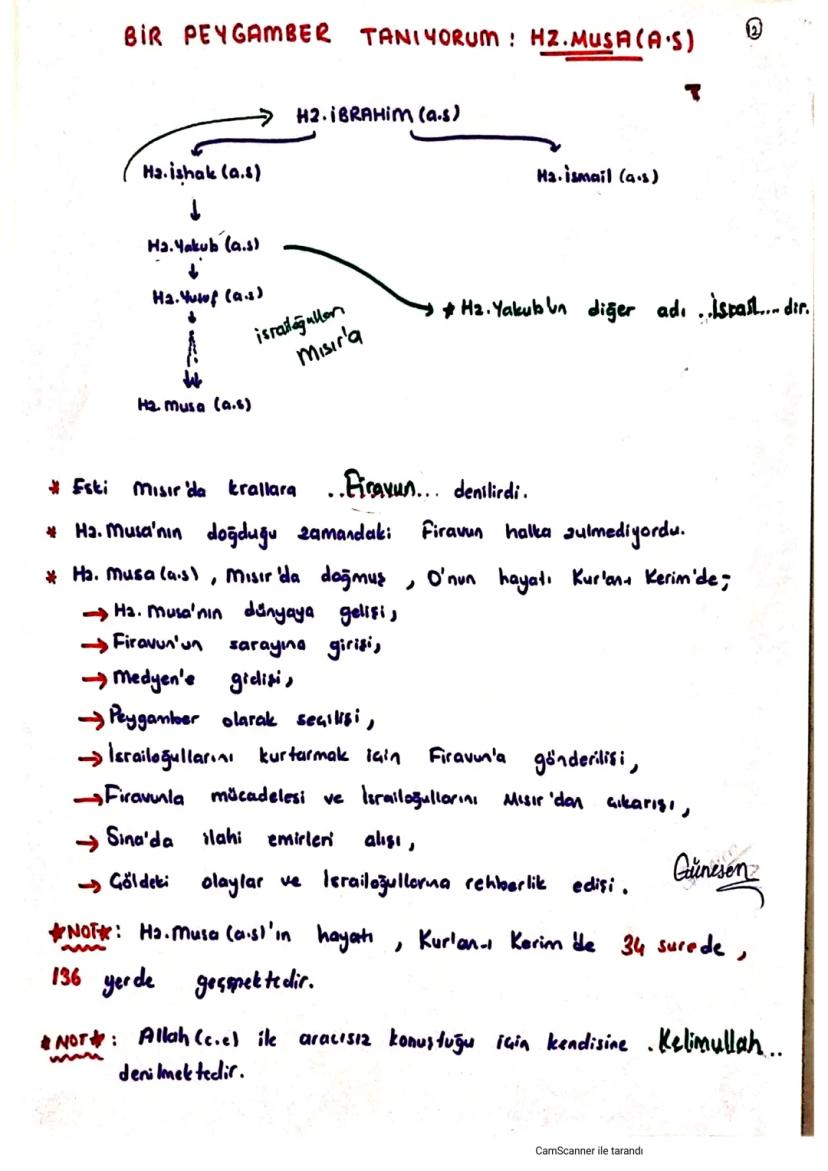 BİR PEYGAMBER TANIYORUM : HZ.MUSA(A.S)
12
HZ.İBRAHİM (a.s)
Hz.İshak (a.s)
Hz.İsmail (a.s)
Hz.Yakub (a.s)
Hz.Yusuf (a.s)
* Hz.Yakub'un diğer adı ..İsrail....dir.
israiloğulları
Mısır'a
Hz.musa (a.s)
* Eski mısır'da krallara ..Firavun... denilirdi.
* Hz.Musa'nın doğduğu zamandaki Firavun halka zulmediyordu.
* Hz. Musa(a.s) , mısır'da doğmuş , O'nun hayatı Kur'an-ı Kerim'de;
→ Hz. Musa'nın dünyaya gelişi,
→ Firavun'un sarayına girişi,
→ Medyen'e gidişi,
→ Peygamber olarak seçilişi,
→ İsrailoğullarını kurtarmak için Firavun'a gönderilişi,
→ Firavunla mücadelesi ve İsrailoğullarını Mısır'dan çıkarışı,
→ Sina'da ilahi emirleri alışı,
→ Çöldeki olaylar ve İsrailoğullarına rehberlik edişi.
Günesen
*NOT*: Hz.Musa (a.s)'ın hayatı , Kur'an-ı Kerim'de 34 surede ,
136 yerde geçmektedir.
*NOT*: Allah (c.c) ile aracısız konuştuğu için kendisine .Kelimullah..
denilmektedir.
CamScanner ile tarandı